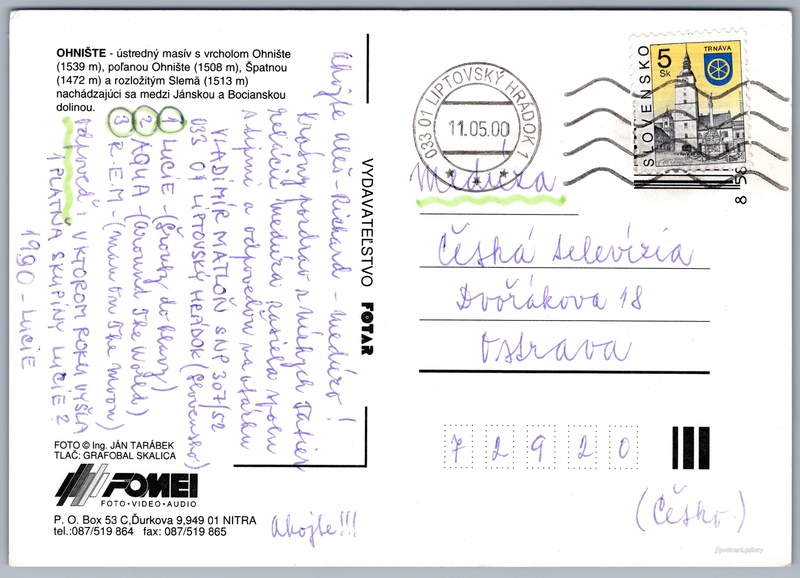 OHNIŠTE - ústredný masív s vrcholom Ohnište
(1539 m), poľanou Ohnište (1508 m), Špatnou
(1472 m) a rozložitým Slemä (1513 m)
nachádzajúci sa medzi Jánskou a Bocianskou
dolinou.
Ahojte Aleš-Richard - Medúzo!
Krásny pozdrav z Nízkych Tatier
relácii Medúza zasiela spolu
s tipmi a odpoveďou na otázku
VLADIMÍR MATLOŇ SNP 307/52
033 01 LIPTOVSKÝ HRÁDOK (Slovensko)
1 LUCIE - (Šrouby do hlavy)
2 AQUA - (Around the World)
3 R.E.M - (Man on the Moon)
odpoveď: V KTOROM ROKU VYŠLA
1 PLATŇA SKUPINY LUCIE?
1990 - LUCIE
Ahojte!!!
VYDAVATEĽSTVO FOTAR
FOTO © Ing. JÁN TARÁBEK
TLAČ: GRAFOBAL SKALICA
FOMEI
FOTO·VIDEO·AUDIO
P. O. Box 53 C,Ďurkova 9,949 01 NITRA
tel.:087/519 864 fax: 087/519 865
033 01 LIPTOVSKÝ HRÁDOK 1
11.05.00
SLOVENSKO
5 Sk
TRNAVA
Medúza
Česká televízia
Dvořákova 18
Ostrava
72920
(Česko)
postcard.gallery